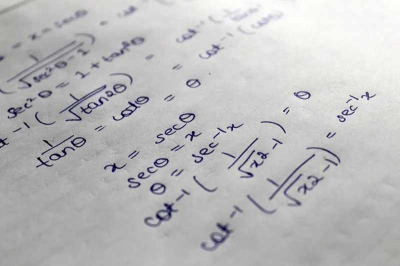 = x = secθ
( 1/√sec²θ-1 ) = cot⁻¹
sec²θ = 1 + tan²θ
cot⁻¹ ( 1/√tan2θ ) = cot⁻¹ (cotθ)
1/tanθ = cotθ = θ
x = secθ
secθ = x
θ = sec⁻¹x
cot⁻¹ ( 1/√x2-1 ) = θ
cot⁻¹ ( 1/√x2-1 ) = sec⁻¹x